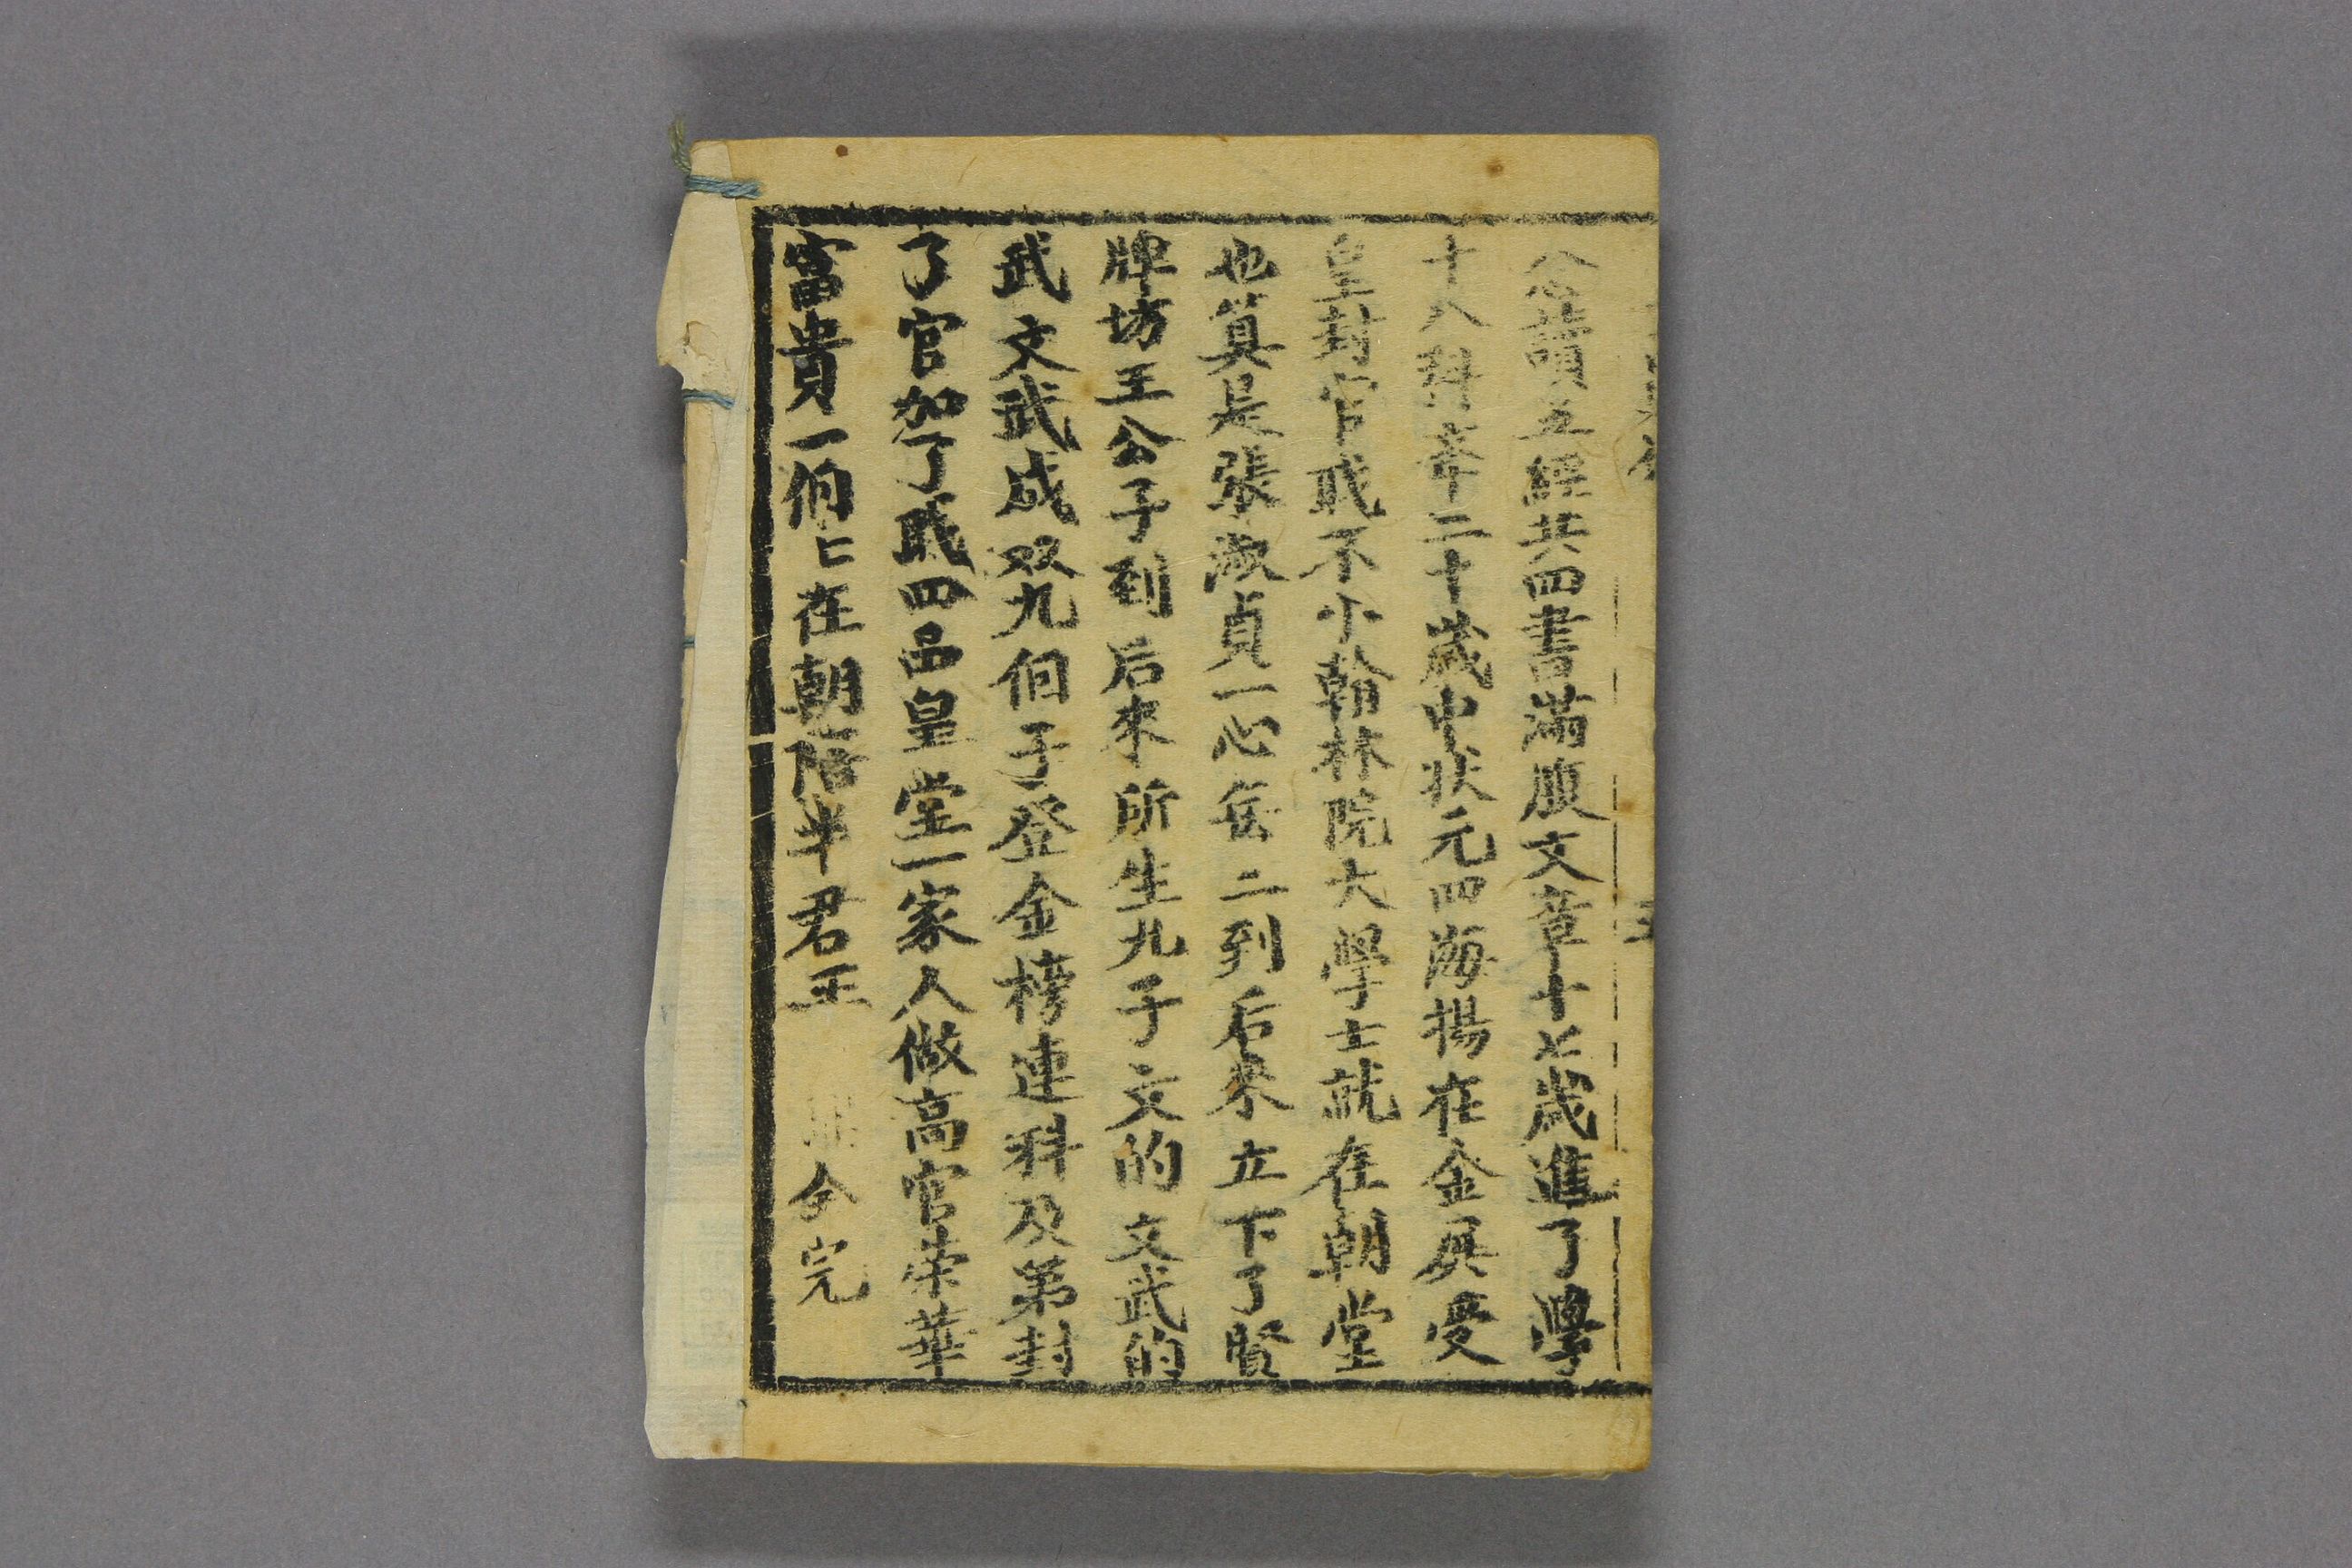 念讀五經共四書滿腹文章十七歲進了學
十八科舉二十歲中狀元四海揚在金展受
皇封官戝不小翰林院大學士就在朝堂
也真是張淑貞一心無二到后來立下了賢
牌坊王公子到后來所生九子文的文武的
武文武成双九佪子登金榜連科及第封
了官加了戝四品皇堂一家人做高官荣華
富貴一佪匕在朝陪半君王 全完